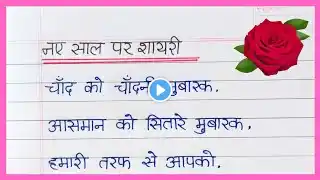 नए साल पर शायरी
चाँद को चाँदनी मुबारक.
आसमान को सितारे मुबारक.
हमारी तरफ से आपको.